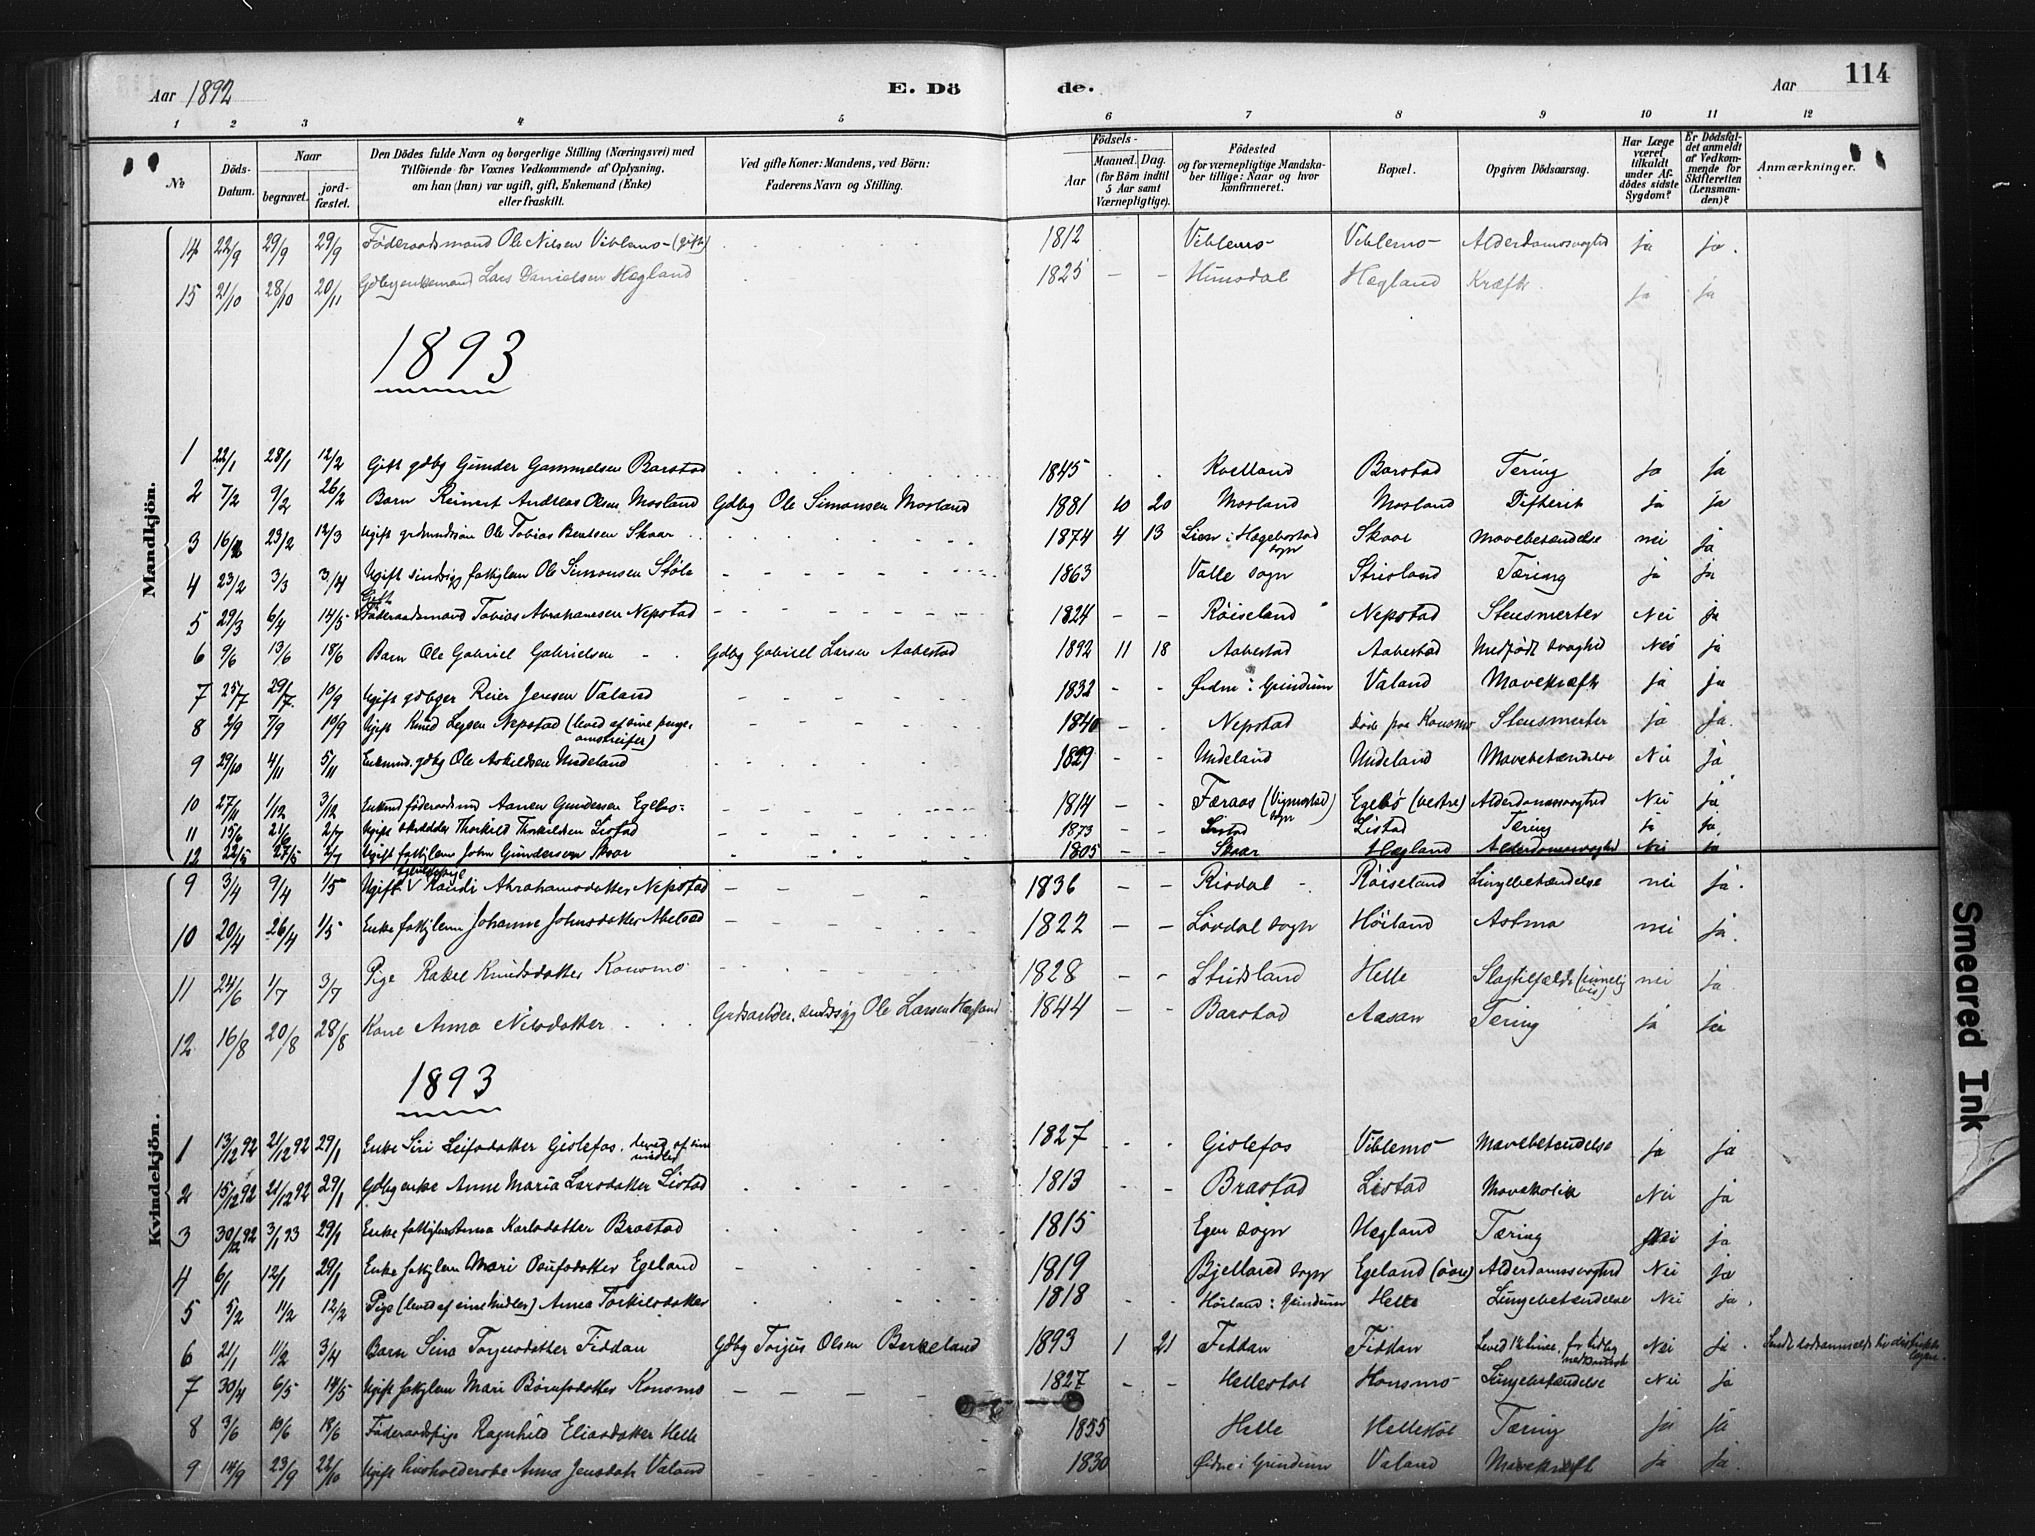 Aar 1892 E. Dö de. Aar 114
1 2 3 4 5 6 7 8 9 10 11 12
No Döds-Datum. Naar begravet. jord-fæstet. Den Dödes fulde Navn og borgerlige Stilling (Næringsvei) med Tilföiende for Voxnes Vedkommende af Oplysning, om han (hun) var ugift, gift, Enkemand (Enke) eller fraskilt. Ved gifte Koner: Mandens, ved Börn: Faderens Navn og Stilling. Födsels- Aar Maaned. Dag. (for Börn indtil 5 Aar samt Værnepligtige). Födested og for værnepligtige Mandskaber tillige: Naar og hvor konfirmeret. Bopæl. Opgiven Dödsaarsag. Har Læge været tilkaldt under Afdödes sidste Sygdom? Er Dödsfaldet anmeldt af Vedkommende for Skifteretten (Lensmanden)? Anmærkninger.
Mandkjön.
14 22/9 29/9 29/9 Föderaadsmand Ole Nilsen Viblemo (gift) 1812 Viblemo Viblemo Alderdomssvaghed ja ja.
15 21/10 28/10 20/11 Gdbg enkemand Lars Danielsen Hægland 1825 – – Hunsdal Hægland Kræft ja ja
1893
1 22/1 28/1 12/2 Gift gdbg Gunder Gammelsen Barstad 1845 Kvelland Barstad Tering ja ja
2 7/2 9/2 26/2 Barn Reinert Andreas Olsen Mosland Gdbg Ole Simonsen Mosland 1881 10 20 Mosland Mosland Difterit ja ja
3 16/2 23/2 12/3 Ugift Ole Tobias Bentsen Skaar 1874 4 13 Lien i Hægebostad sogn Skaar Mavebetændelse nei ja
4 23/2 3/3 3/4 Ugift fattiglem Ole Simonsen Støle 1863 Valle sogn Strisland Tæring ja ja
5 29/3 6/4 14/5 Gift Föderaadsmand Tobias Abrahamsen Nepstad 1824 – – Röiseland Nepstad Stensmerter Nei ja
6 9/6 13/6 18/6 Barn Ole Gabriel Gabrielsen Gdbg Gabriel Larsen Aabestad 1892 11 18 Aabestad Aabestad Medfödt svaghed Nei ja
7 25/7 29/7 10/9 Ugift gdbger Reier Jensen Valand 1832 - - Ødne i Grindum Valand Mavekræft ja ja
8 2/9 7/9 10/9 Ugift Knud Nepstad (leved af sine penge, omstreifer) 1840 - - Nepstad döde paa Konsmo Stensmerter ja ja.
9 29/10 4/11 5/11 Enkmd. gdbg Ole Askildsen Undeland 1829 - - Undeland Undeland Mavebetændelse Nei ja
10 27/11 1/12 3/12 Enkmd föderaadsmd Aanen Gundersen Egebö 1814 – – Færaas (Vigmostad) sogn Egebö (vestre) Alderdomssvaghed Nei ja
11 15/6 21/6 2/7 Ugift skrædder Thorkild Thorkildsen Listad 1873 – – Listad Listad Tering ja ja.
12 22/5 27/5 2/7 Ugift fattiglem John Gundersen Skaar 1805 – – Skaar Hægland Alderdomssvaghed Nei ja
Kvindekjön.
9 3/4 9/4 1/5 Ugift Randi Abrahamsdatter Nepstad 1836 – – Risdal Röiseland Lungebetændelse nei ja.
10 20/4 26/4 1/5 Enke fattiglem Johanne Johnsdatter Abelsed 1822 – – Lövdal sogn Höiland Astma nei ja.
11 24/6 1/7 3/7 Pige Rakel Knudsdatter Konsmo 1828 – – Stridsland Helle Slagtilfælde nei ja
12 16/8 20/8 28/8 Kone Anna Nilsdatter Ole Larsen Hægland 1844 – – Barstad Aasan Tering ja ja
1893
1 13/12 92 21/12 92 29/1 Enke Siri Leifsdatter Gislefos. leved af sine midler 1827 - - Gislefos Viblemo Mavebetændelse ja ja
2 15/12 92 21/12 92 29/1 Gdbg enke Anne Maria Larsdatter Listad 1813 - - Brastad Listad Mavekolik Nei ja
3 30/12 92 3/1 93 29/1 Enke fattiglem Anna Karlsdatter Brastad 1815 Egen sogn Hægland Tæring Nei ja
4 6/1 12/1 29/1 Enke fattiglem Mari Egeland 1819 Bjelland sogn Egeland (övre) Alderdomssvaghed Nei ja
5 5/2 11/2 12/2 Pige (leved af sine midler) Anna Torkilsdatter 1818 - - Höiland i Grindum Helle Lungebetændelse Nei ja.
6 21/1 11/2 3/4 Barn Sina Torjusdatter Fiddan Gdbg Torjus Olsen Birkeland 1893 1 21 Fiddan Fiddan Leved 1/2 time. for tidlig nedkomst Nei ja.
7 30/4 6/5 14/5 Ugift fattiglem Mari Børufsdatter Konsmo 1827 - - Hellestøl Konsmo Lungebetændelse Nei ja
8 3/6 10/6 18/6 Föderaadspige Ragnhild Eliasdatter Helle 1855 Helle Hellestöl Tæring ja ja
9 14/9 23/9 22/10 Ugift husholderske Anna Jensdatr Valand 1830 Ødne i Grindum Valand Mavekræft ja ja.
Smeared Ink